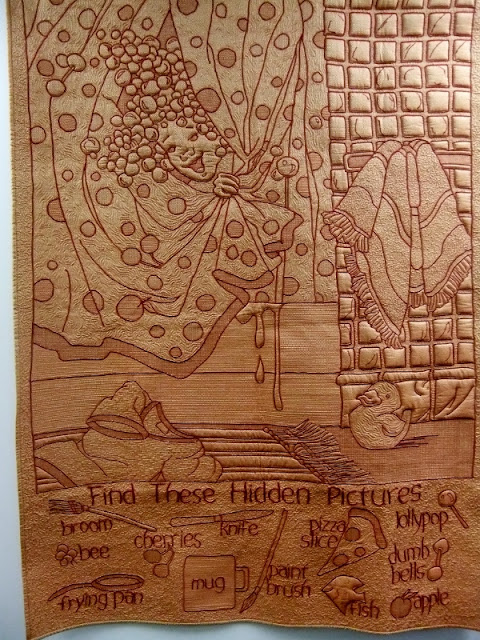 Find These Hidden Pictures
broom
bee
cherries
knife
pizza
slice
lollypop
frying pan
mug
paint
brush
fish
dumb
bells
apple